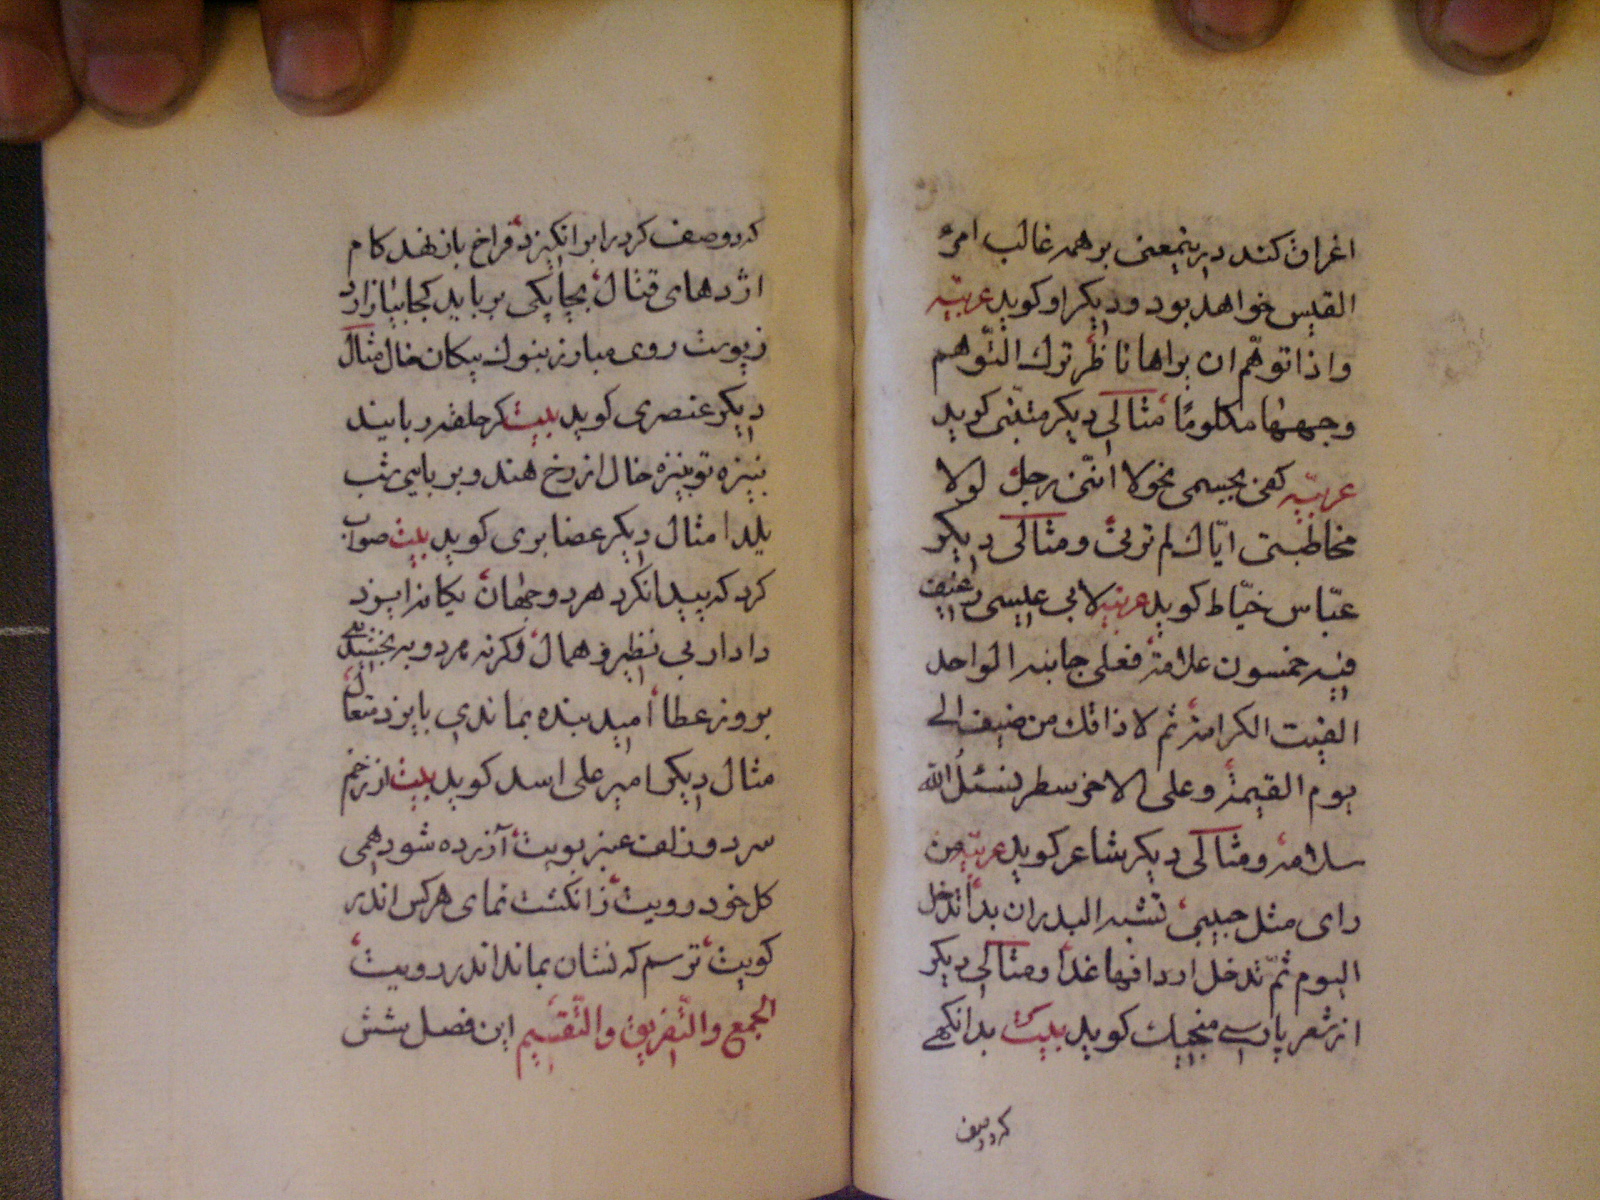 اغراق کند درینمعنی بر همه غالب امرؤ
القیس خواهد بود و دیکر او کوید عربیّه
واذا توهّم ان یراها ناظر ترك التّوهم
وجهها مکلومًا مثالی دیکر متنبّی کوید
عربیّه کفی بجسمی نحولا انّنی رجل لولا
مخاطبتی ایّاك لم ترنی ومثالی دیکر
عبّاس خیّاط کوید عربیّه لابی عیسی رغیف
فیه خمسون علامة فعلی جانبه الواحد
الفیت الکرامة ثم لا ذاقك من ضیف الی
یوم القیمة وعلی الاخر سطر نسئل الله
سلامه ومثالی دیکر شاعر کوید عربیّه من
رای مثل حبیبی تشبه البدر ان بدا تدخل
الیوم ثمّ تدخل اردافها غدا ومثالی دیکر
از شعر پارسی منجیك کوید بیت بدانکهی
که دو صف
که دو صف کردد را برانکیزد فراخ باز نهد کام
اژدهای قتال بچابکی برباید کجا نیازارد
ز پوست روی مبارز بنوك پیکان خال مثال
دیکر عنصری کوید بیت کر حلقه ربایند
بنیزه تو بنیزه خال از رخ هند و بربایی شب
یلدا مثال دیکر عضایری کوید بیت صواب
کرد که پیدا نکرد هر دو جهان یکانه ایزد
دادار بی نظیر و همال وکرنه هر دو ببخشیدی
بروز عطا امید بنده نماندی بایزد متعال
مثال دیکر امیر علی اسد کوید بیت از زخم
سر دو زلف عنبر بویت آزرده شود همی
کل خود رویت ز انکشت نمای هر کس اندر
کویت ترسم که نشان بماند اندر رویت
الجمع والتّفریق والتّقسیم این فصل شش